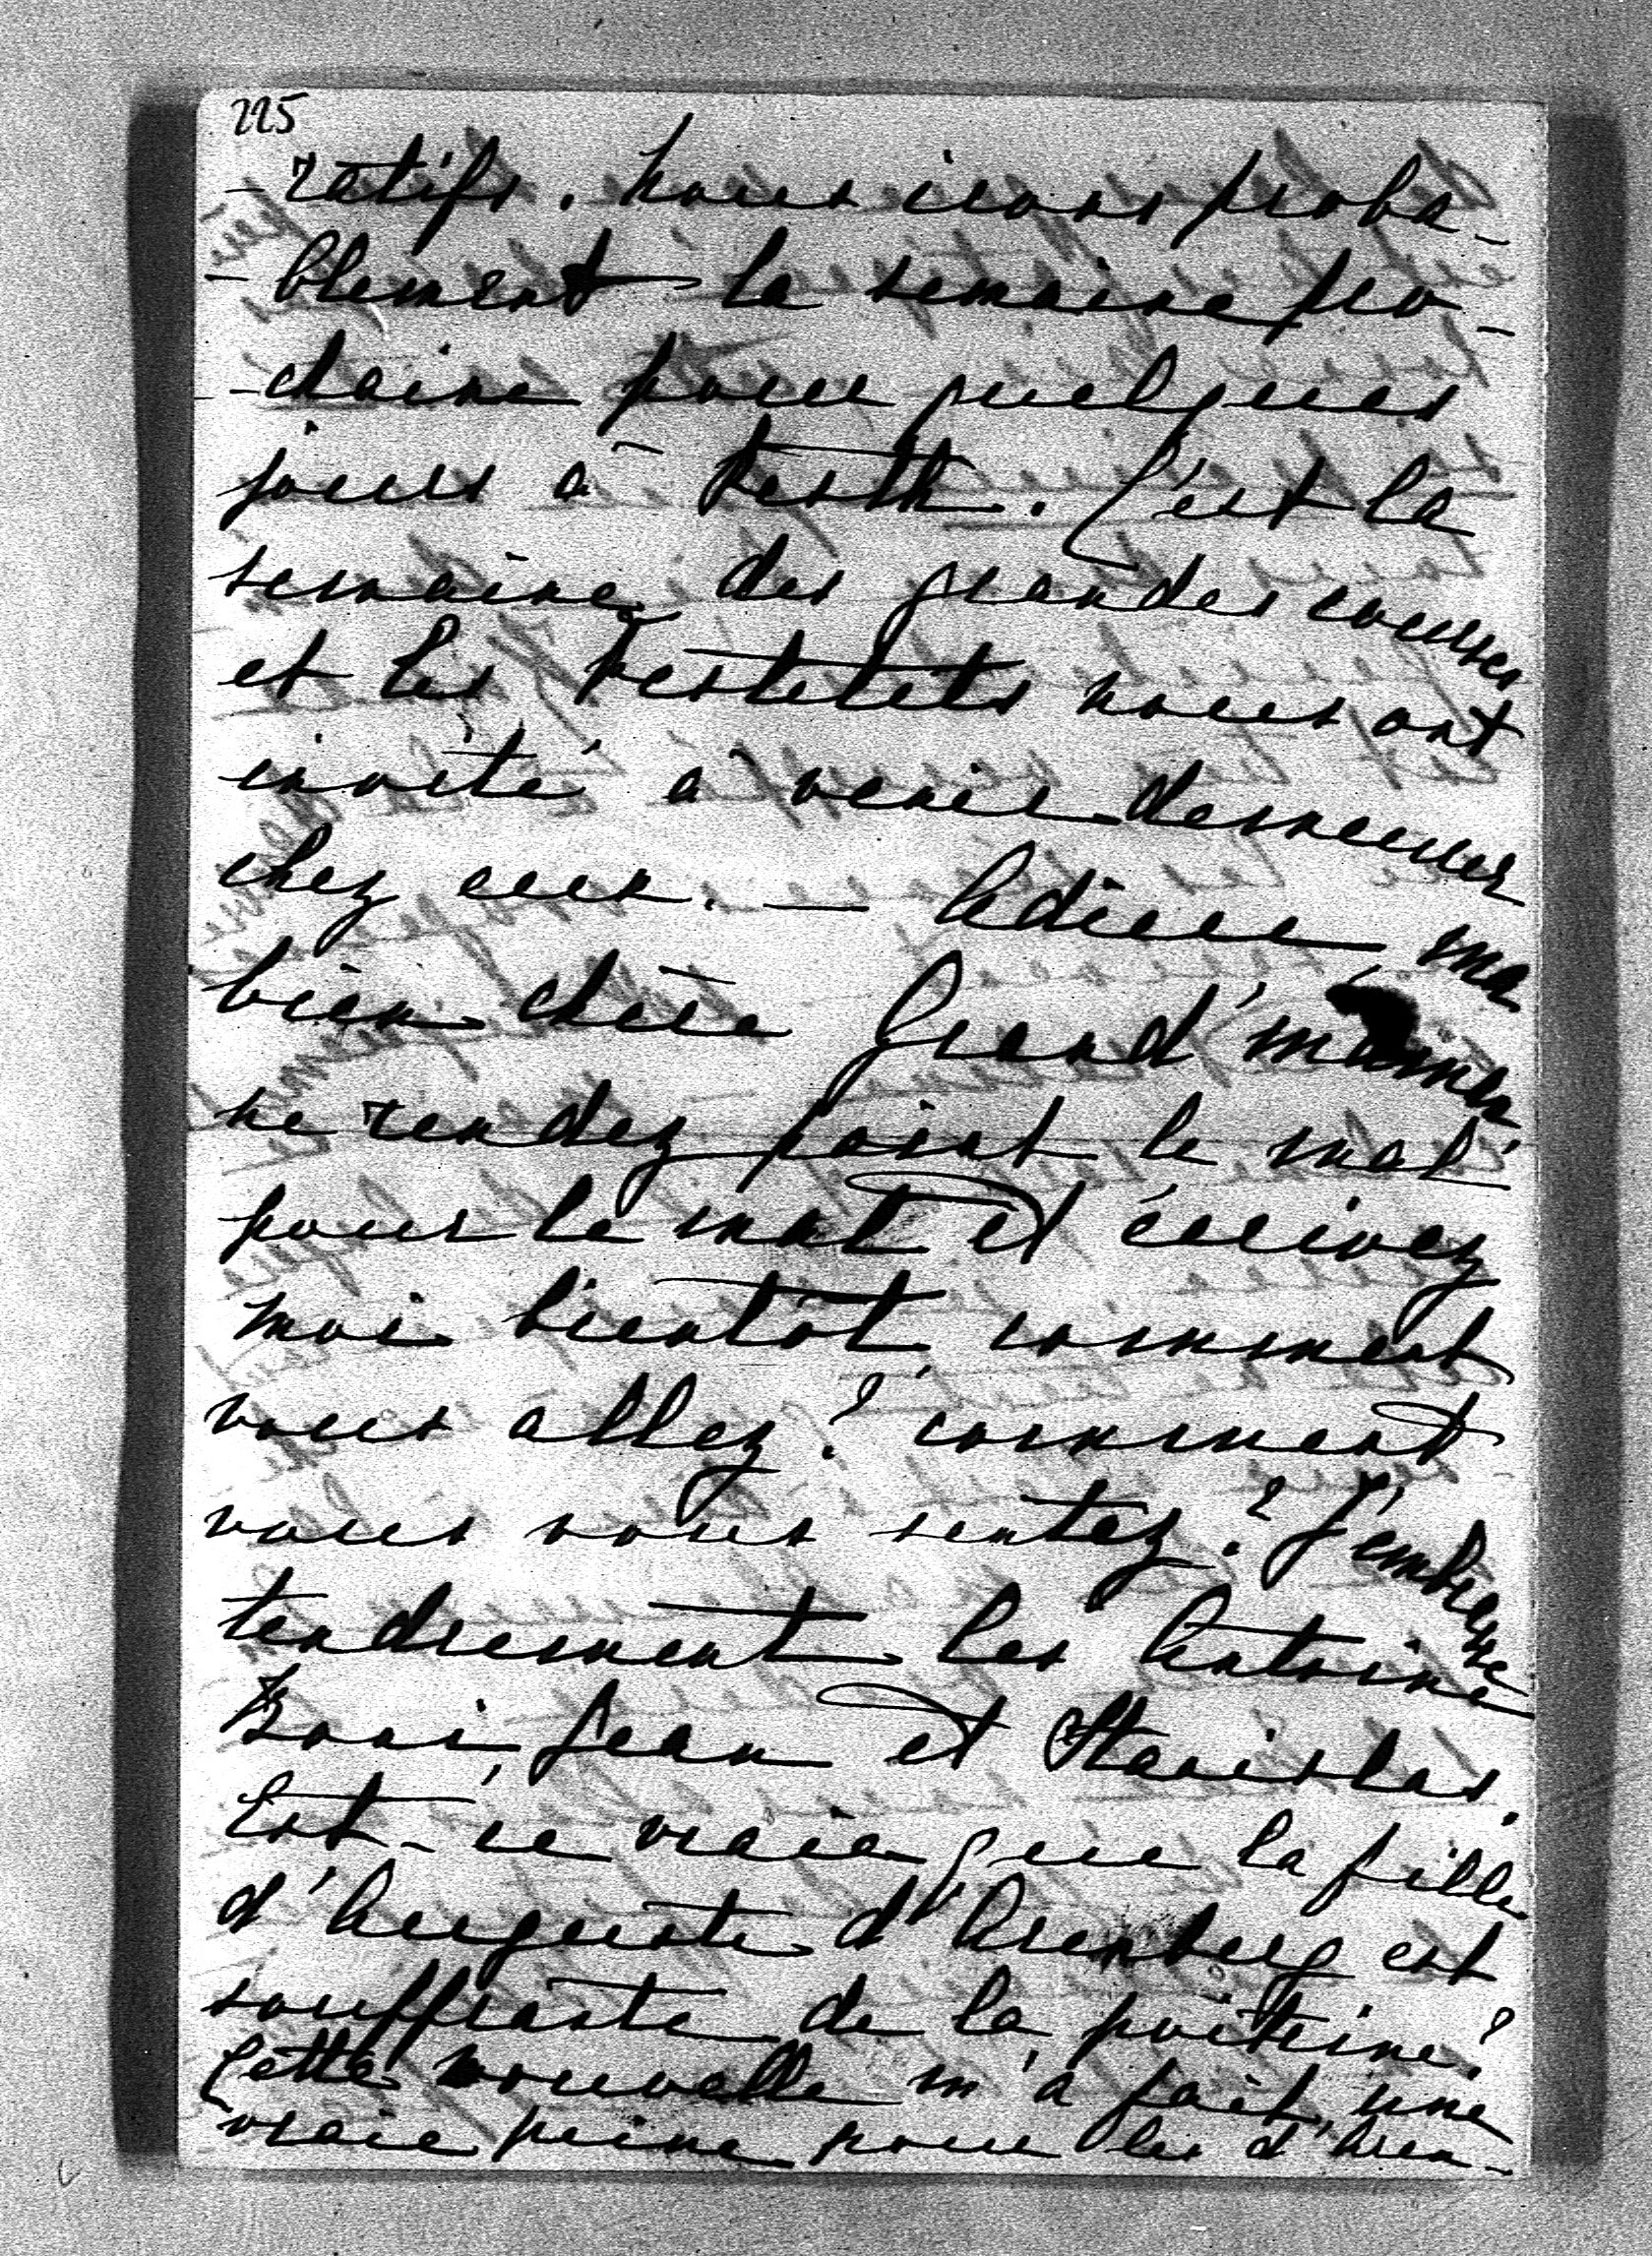 225
-ratifs. Nous irons proba-
-blement la semaine pro-
-chaine pour quelques
jours à Pesth. C'est la
semaine des grandes courses
et les Festetits nous ont
invité à venir demeurer
chez eux. — Adieu ma
bien chère Grand'maman
ne rendez point le mal
pour le mal et écrivez
moi bientôt, comment
vous allez? comment
vous vous sentez? J'embrasse
tendrement les Antoine
Boni, Jean et Stanislas.
Est-ce vraie que la fille
d'Auguste d'Arenberg est
souffrante de la poitrine?
Cette nouvelle m'a fait une
vraie peine pour les d'Aren-